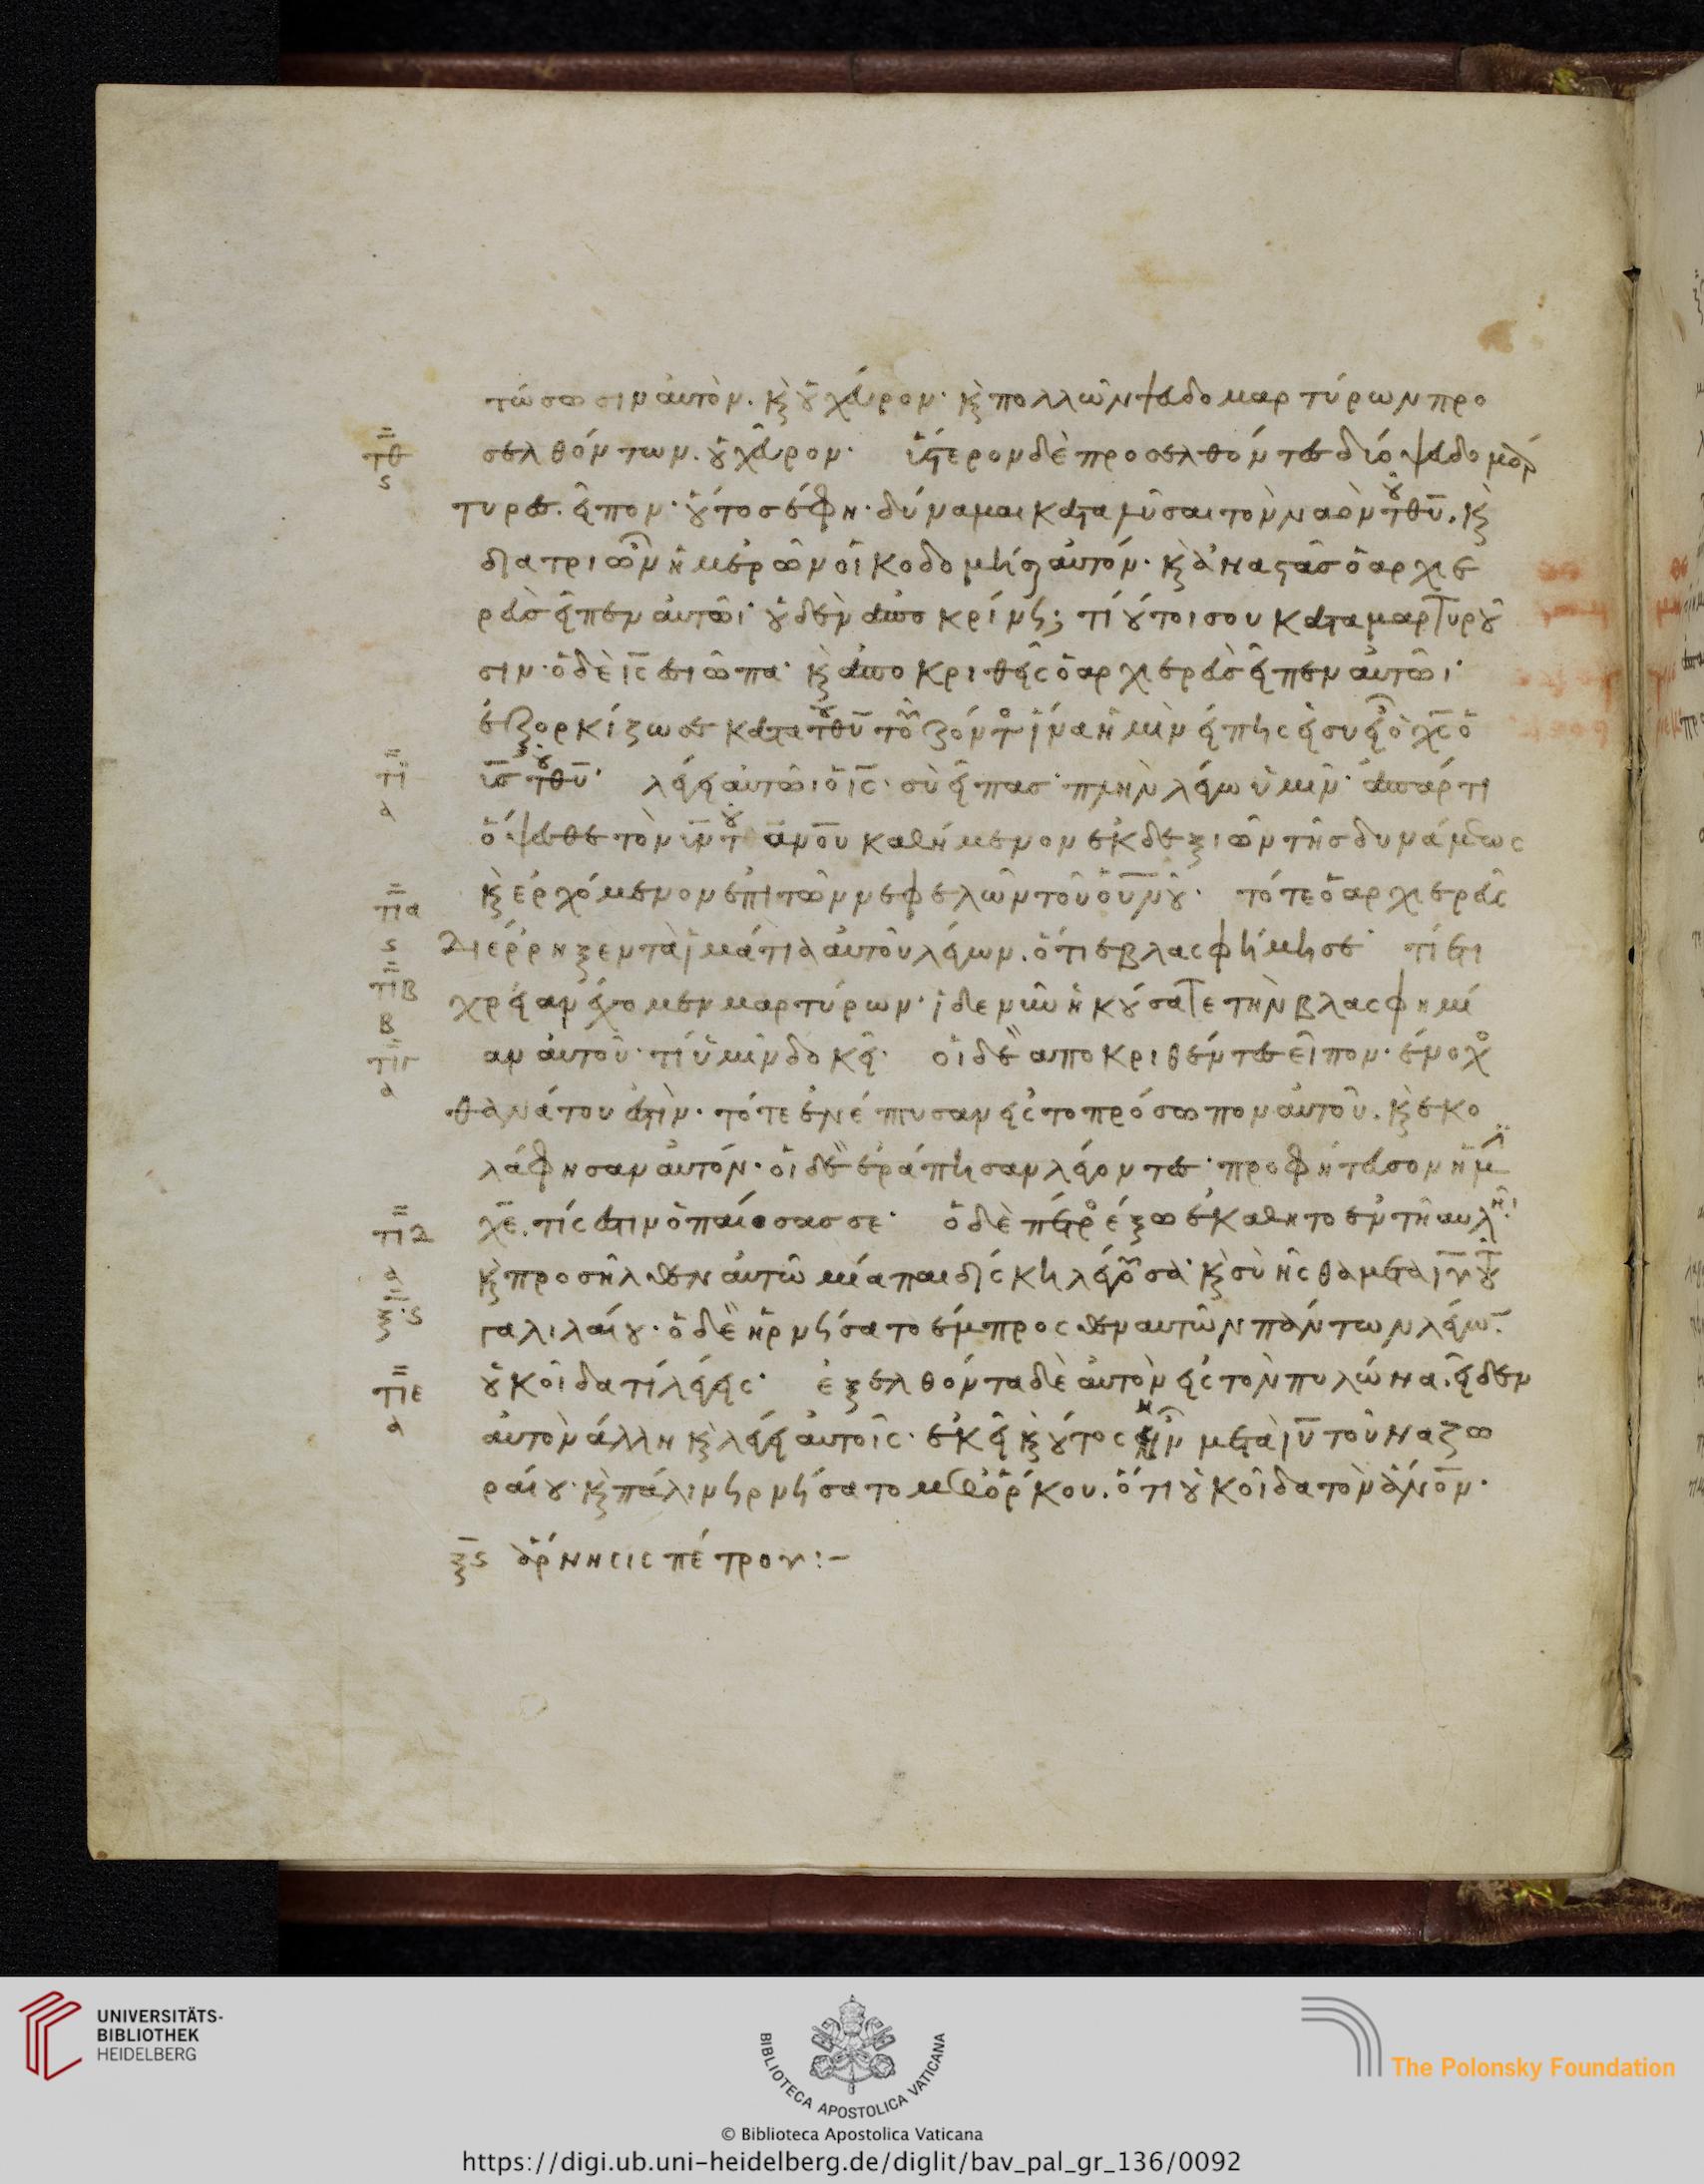 τώσωσιν αὐτὸν. κ οὐχεύρον· κ πολλῶν ψευδομαρτύρων προ
σελθόντων. οὐχεῦρον· ὕστερον δὲ προσελθόντες δύο ψευδομάρ
τυρες. εἶπον· οὗτος ἔφη· δύναμαι καταλῦσαι τὸν ναὸν τοῦ θυ. κ
διατριῶν ἡμερῶν οἰκοδομήσαι αὐτόν· κ ἀναστὰς ὁ ἀρχιε
ρεὺς εἶπεν αὐτῶι· οὐδὲν ἀποκρίνη; τί οὗτοι σου καταμαρτυροῦ
σιν· ὁ δὲ ις ἐσιώπα· κ ἀποκριθεὶς ὁ ἀρχιερεὺς εἶπεν αὐτῶι·
ἐξορκίζω σε κατὰ τοῦ θυ τοῦ ζόντος ἵνα ἡμῖν εἴπης εἰ συ εἶ ὁ χς ὁ
υς τοῦ θυ· λέγει αὐτῶι ὁ ις· σὺ εἶπας· πλὴν λέγω ὑμῖν· ἀπάρτι
ὄψεσθε τὸν υν τοῦ ανου καθήμενον ἐκ δεξιῶν τῆς δυνάμεως
κ ἐρχόμενον ἐπὶ τῶν νεφελῶν τοῦ ουνου· τότε ὁ ἀρχιερεὺς
διέρρηξεν τὰ ἱμάτια αὐτοῦ λέγων. ὅτι ἐβλασφήμησε· τί ἔτι
χρείαν ἔχομεν μαρτύρων· ἴδε νῦν ἠκούσατε τὴν βλασφημί
αν αὐτοῦ· τί ὑμῖν δοκεῖ· οἱ δὲ ἀποκριθέντες εἶπον· ἔνοχος
θανάτου ἐστὶν· τότε ἐνέπτυσαν εἰς το πρόσωπον αὐτοῦ. κ ἐκο
λάφησαν αὐτόν· οἱ δὲ ἐράπησαν λέγοντες· προφήτευσον ἡμῖν
χε. τίς ἐστιν ὁ παίσας σε· ὁ δὲ πέτρος ἔξω ἐκάθητο ἐν τῆ αυλῆι·
κ προσῆλθεν αὐτῶ μία παιδίσκη λέγουσα· κ σὺ ἦσθα μετὰ ιυ τοῦ
γαλιλαίου· ὁ δὲ ἠρνήσατο ἔμπροσθεν αυτῶν πάντων λέγων.
οὐκ οἶδα τί λέγεις· ἐξελθόντα δὲ αὐτὸν εἰς τὸν πυλώνα. εἶδεν
αὐτὸν ἄλλη κ λέγει αὐτοῖς· ἐκεῖ κ οὗτος ἦν μετὰ ιυ τοῦ ναζω
ραίου· κ πάλιν ἠρνήσατο μεθ᾽ ὅρκου. ὅτι οὐκ οἶδα τὸν ανον·
ξς ἄρνησις πέτρου:-
τθ
ς
τι
α
τια
ς
τιβ
β
τιγ
α
τιδ
α
ξς
τιε
α
UNIVERSITÄTS-
BIBLIOTHEK
HEIDELBERG
BIBLIOTECA APOSTOLICA VATICANA
The Polonsky Foundation
© Biblioteca Apostolica Vaticana
https://digi.ub.uni-heidelberg.de/diglit/bav_pal_gr_136/0092